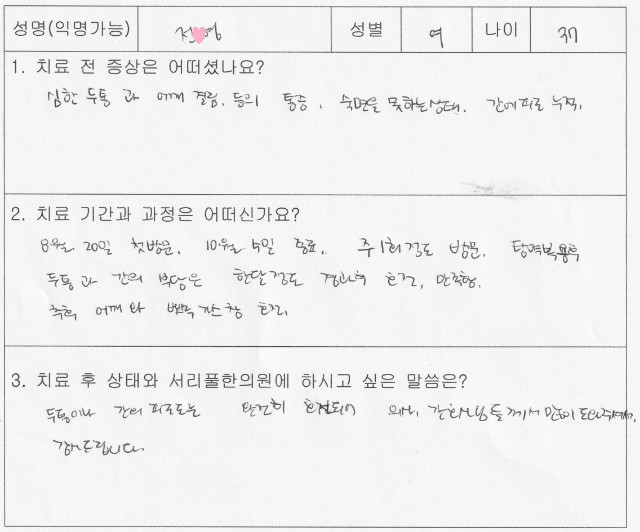 성명(익명가능) 전 영 성별 여 나이 37
1. 치료 전 증상은 어떠셨나요?
심한 두통 과 어깨 결림. 등의 통증. 숙면을 못하는 상태. 간에 피로 누적.
2. 치료 기간과 과정은 어떠신가요?
8월 20일 첫방문. 10월 5일 종료. 주1회정도 방문. 탕약복용후
두통과 간의 부담은 한달정도 경과후 호전, 만족함.
추후 어깨와 호전.
3. 치료 후 상태와 서리풀한의원에 하시고 싶은 말씀은?
두통이나 간의 피로도는 완전히 호전되어 간호사님들께서 많이 도와주셔서.
감사드립니다.